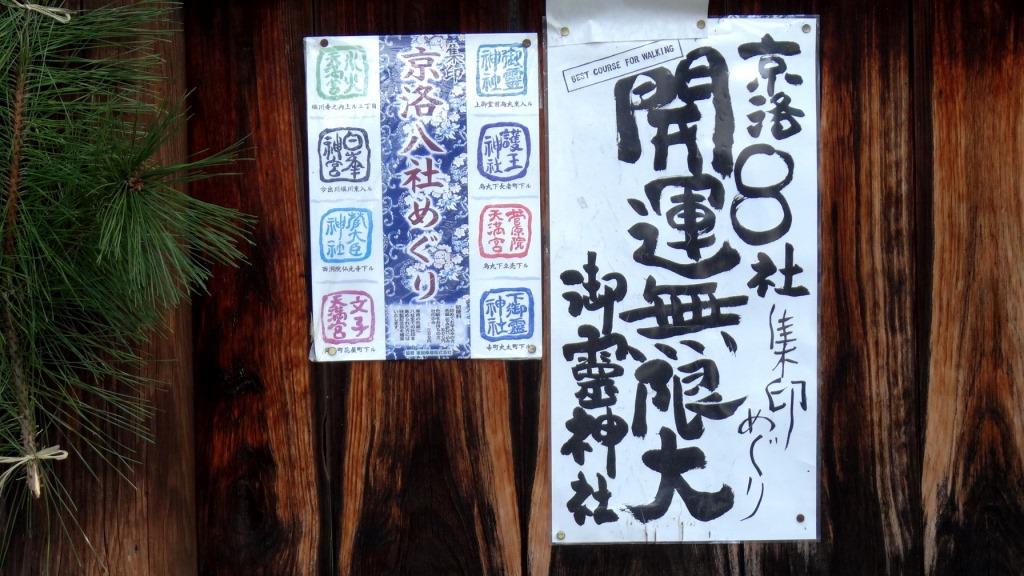 京洛8社
集印めぐり
BEST COURSE FOR WALKING
開運無限大
御靈神社
御靈
神社
上御霊前烏丸東入ル
護王
神社
烏丸下長者町下ル
菅原院
天満宮
烏丸下立売下ル
下御靈
神社
寺町丸太町下ル
集印
京洛八社めぐり
水火
天満宮
堀川寺之内上ル二丁目
白峯
神宮
今出川堀川東入ル
菅大臣
神社
西洞院仏光寺下ル
文子
天満宮
町花屋町下ル